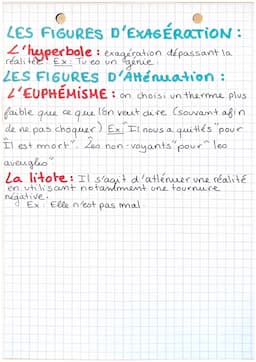 LES FIGURES D'EXAGÉRATION :
L'hyperbole : exagération dépassant la
réalité. Ex : Tu es un génie.
LES FIGURES D'Atténuation :
L'EUPHÉMISME : on choisi un therme plus
faible que ce que l'on veut dire (souvant afin
de ne pas choquer) Ex : "Il nous a quittés" pour
"Il est mort". "Les non-voyants" pour "les
aveugles"
La litote : Il s'agit d'atténuer une réalité
en utilisant notamment une tournure
négative.
Ex : Elle n'est pas mal.